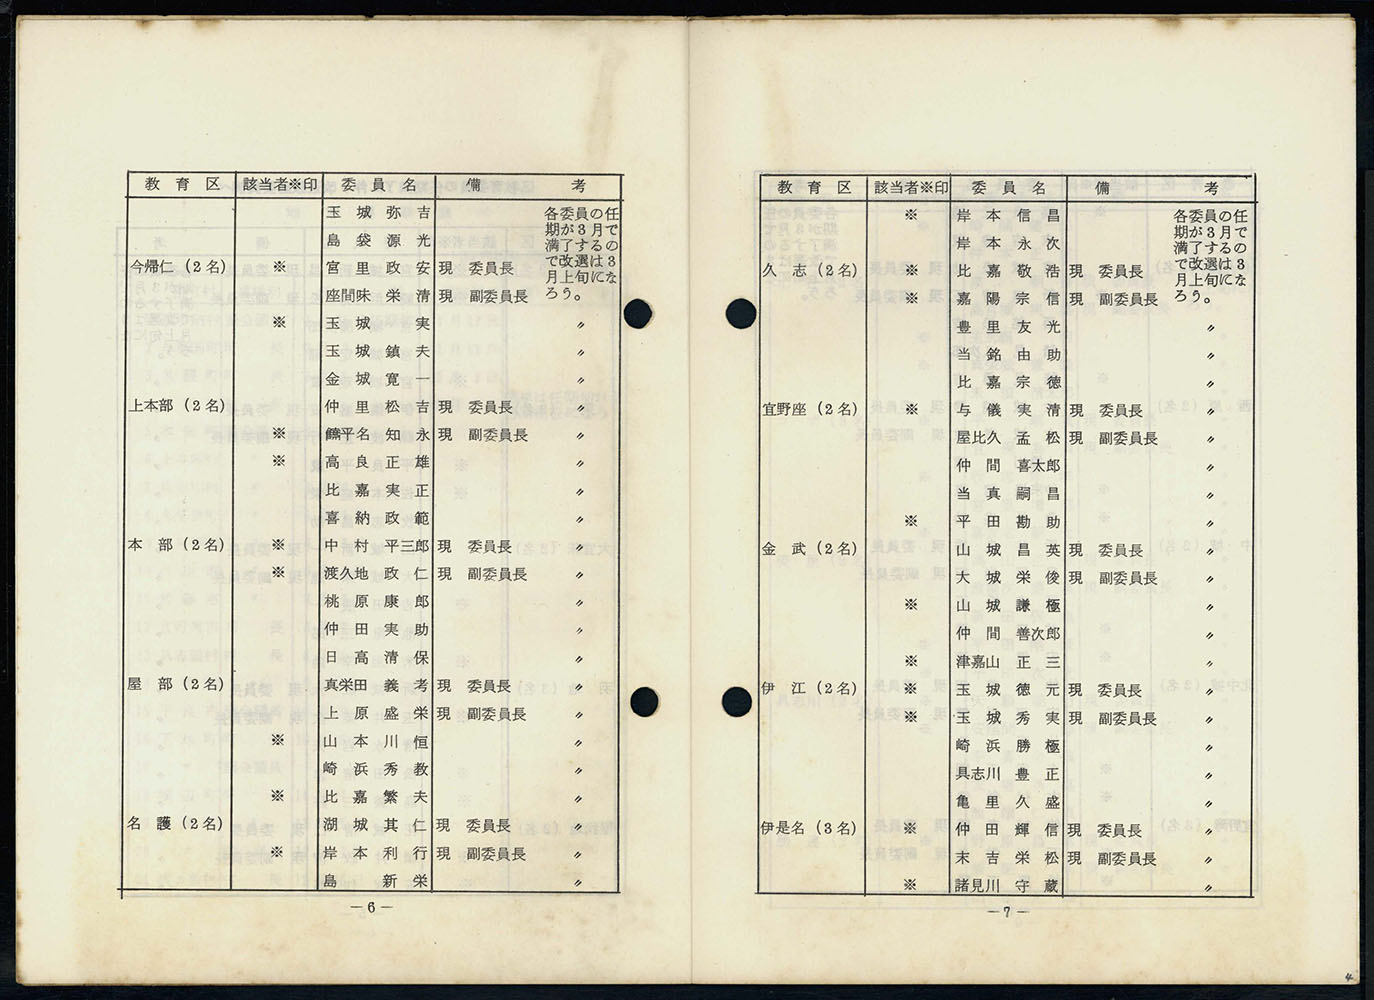 教育区 該当者※印 委員名 備考
玉城弥吉 各委員の任
島袋源光 期が3月で
今帰仁(2名) ※ 宮里政安 現 委員長 満了するの
座間味栄清 現 副委員長 で改選は3
※ 玉城実 月上旬にな
玉城鎮夫 ろう。
金城寛一 〃
上本部(2名) 仲里松吉 現 委員長 〃
※ 饒平名知永 現 副委員長 〃
※ 高良正雄 〃
比嘉実正 〃
喜納政範 〃
本部(2名) ※ 中村平三郎 現 委員長 〃
※ 渡久地政仁 現 副委員長 〃
桃原康郎 〃
仲田実助 〃
日高清保 〃
屋部(2名) 真栄田義考 現 委員長 〃
上原盛栄 現 副委員長 〃
※ 山本川恒 〃
崎浜秀教 〃
※ 比嘉繁夫 〃
名護(2名) 湖城其仁 現 委員長 〃
※ 岸本利行 現 副委員長 〃
島新栄 〃
—6—
教育区 該当者※印 委員名 備考
※ 岸本信昌 各委員の任
岸本永次 期が3月で
久志(2名) ※ 比嘉敬浩 現 委員長 満了するの
※ 嘉陽宗信 現 副委員長 で改選は3
豊里友光 月上旬にな
当銘由助 ろう。
比嘉宗徳 〃
宜野座(2名) ※ 与儀実清 現 委員長 〃
屋比久孟松 現 副委員長 〃
仲間喜太郎 〃
当真嗣昌 〃
※ 平田勘助 〃
金武(2名) 山城昌英 現 委員長 〃
大城栄俊 現 副委員長 〃
※ 山城謙極 〃
仲間善次郎 〃
※ 津嘉山正三 〃
伊江(2名) ※ 玉城徳元 現 委員長 〃
※ 玉城秀実 現 副委員長 〃
崎浜勝極 〃
具志川豊正 〃
亀里久盛 〃
伊是名(3名) ※ 仲田輝信 現 委員長 〃
末吉栄松 現 副委員長 〃
※ 諸見川守蔵 〃
—7—